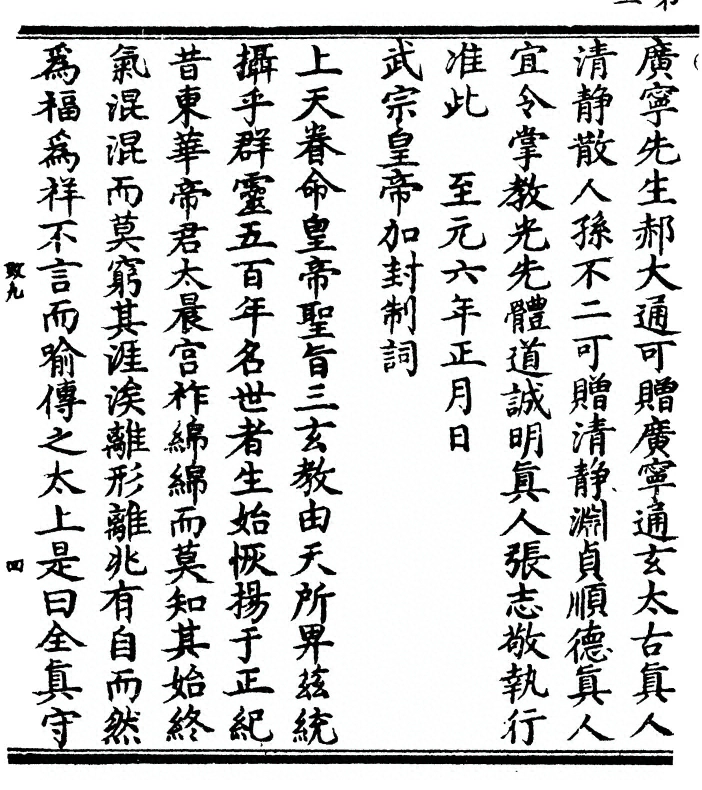 廣寧先生郝大通可贈廣寧通玄太古眞人
清靜散人孫不二可贈清靜淵貞順德眞人
宜令掌教光先體道誠明眞人張志敬執行
准此　至元六年正月日
武宗皇帝加封制詞
上天眷命皇帝聖旨三玄教由天所畀茲統
攝乎群靈五百年名世者生始恢揚于正紀
昔東華帝君太晨宮祚綿綿而莫知其始終
氣混混而莫窮其涯涘離形離兆有自而然
爲福爲祥不言而喻傳之太上是曰全眞守
致九
四